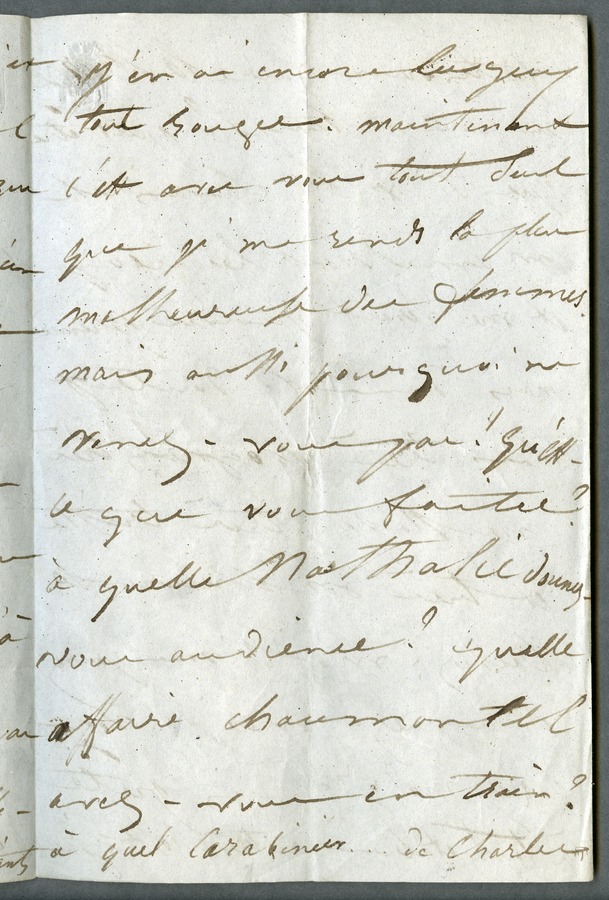 j'en ai encore les yeux
tout rouges. maintenant
c'est avec vous tout seul
que je me rends la plus
malheureuse des femmes.
mais aussi pourquoi ne
venez-vous pas! qu'est-
ce que vous faites?
à quelle Nathalie donnez-
vous audience? quelle
affaire chaumontel
avez-vous en train?
à quel Carabinier... de Charles